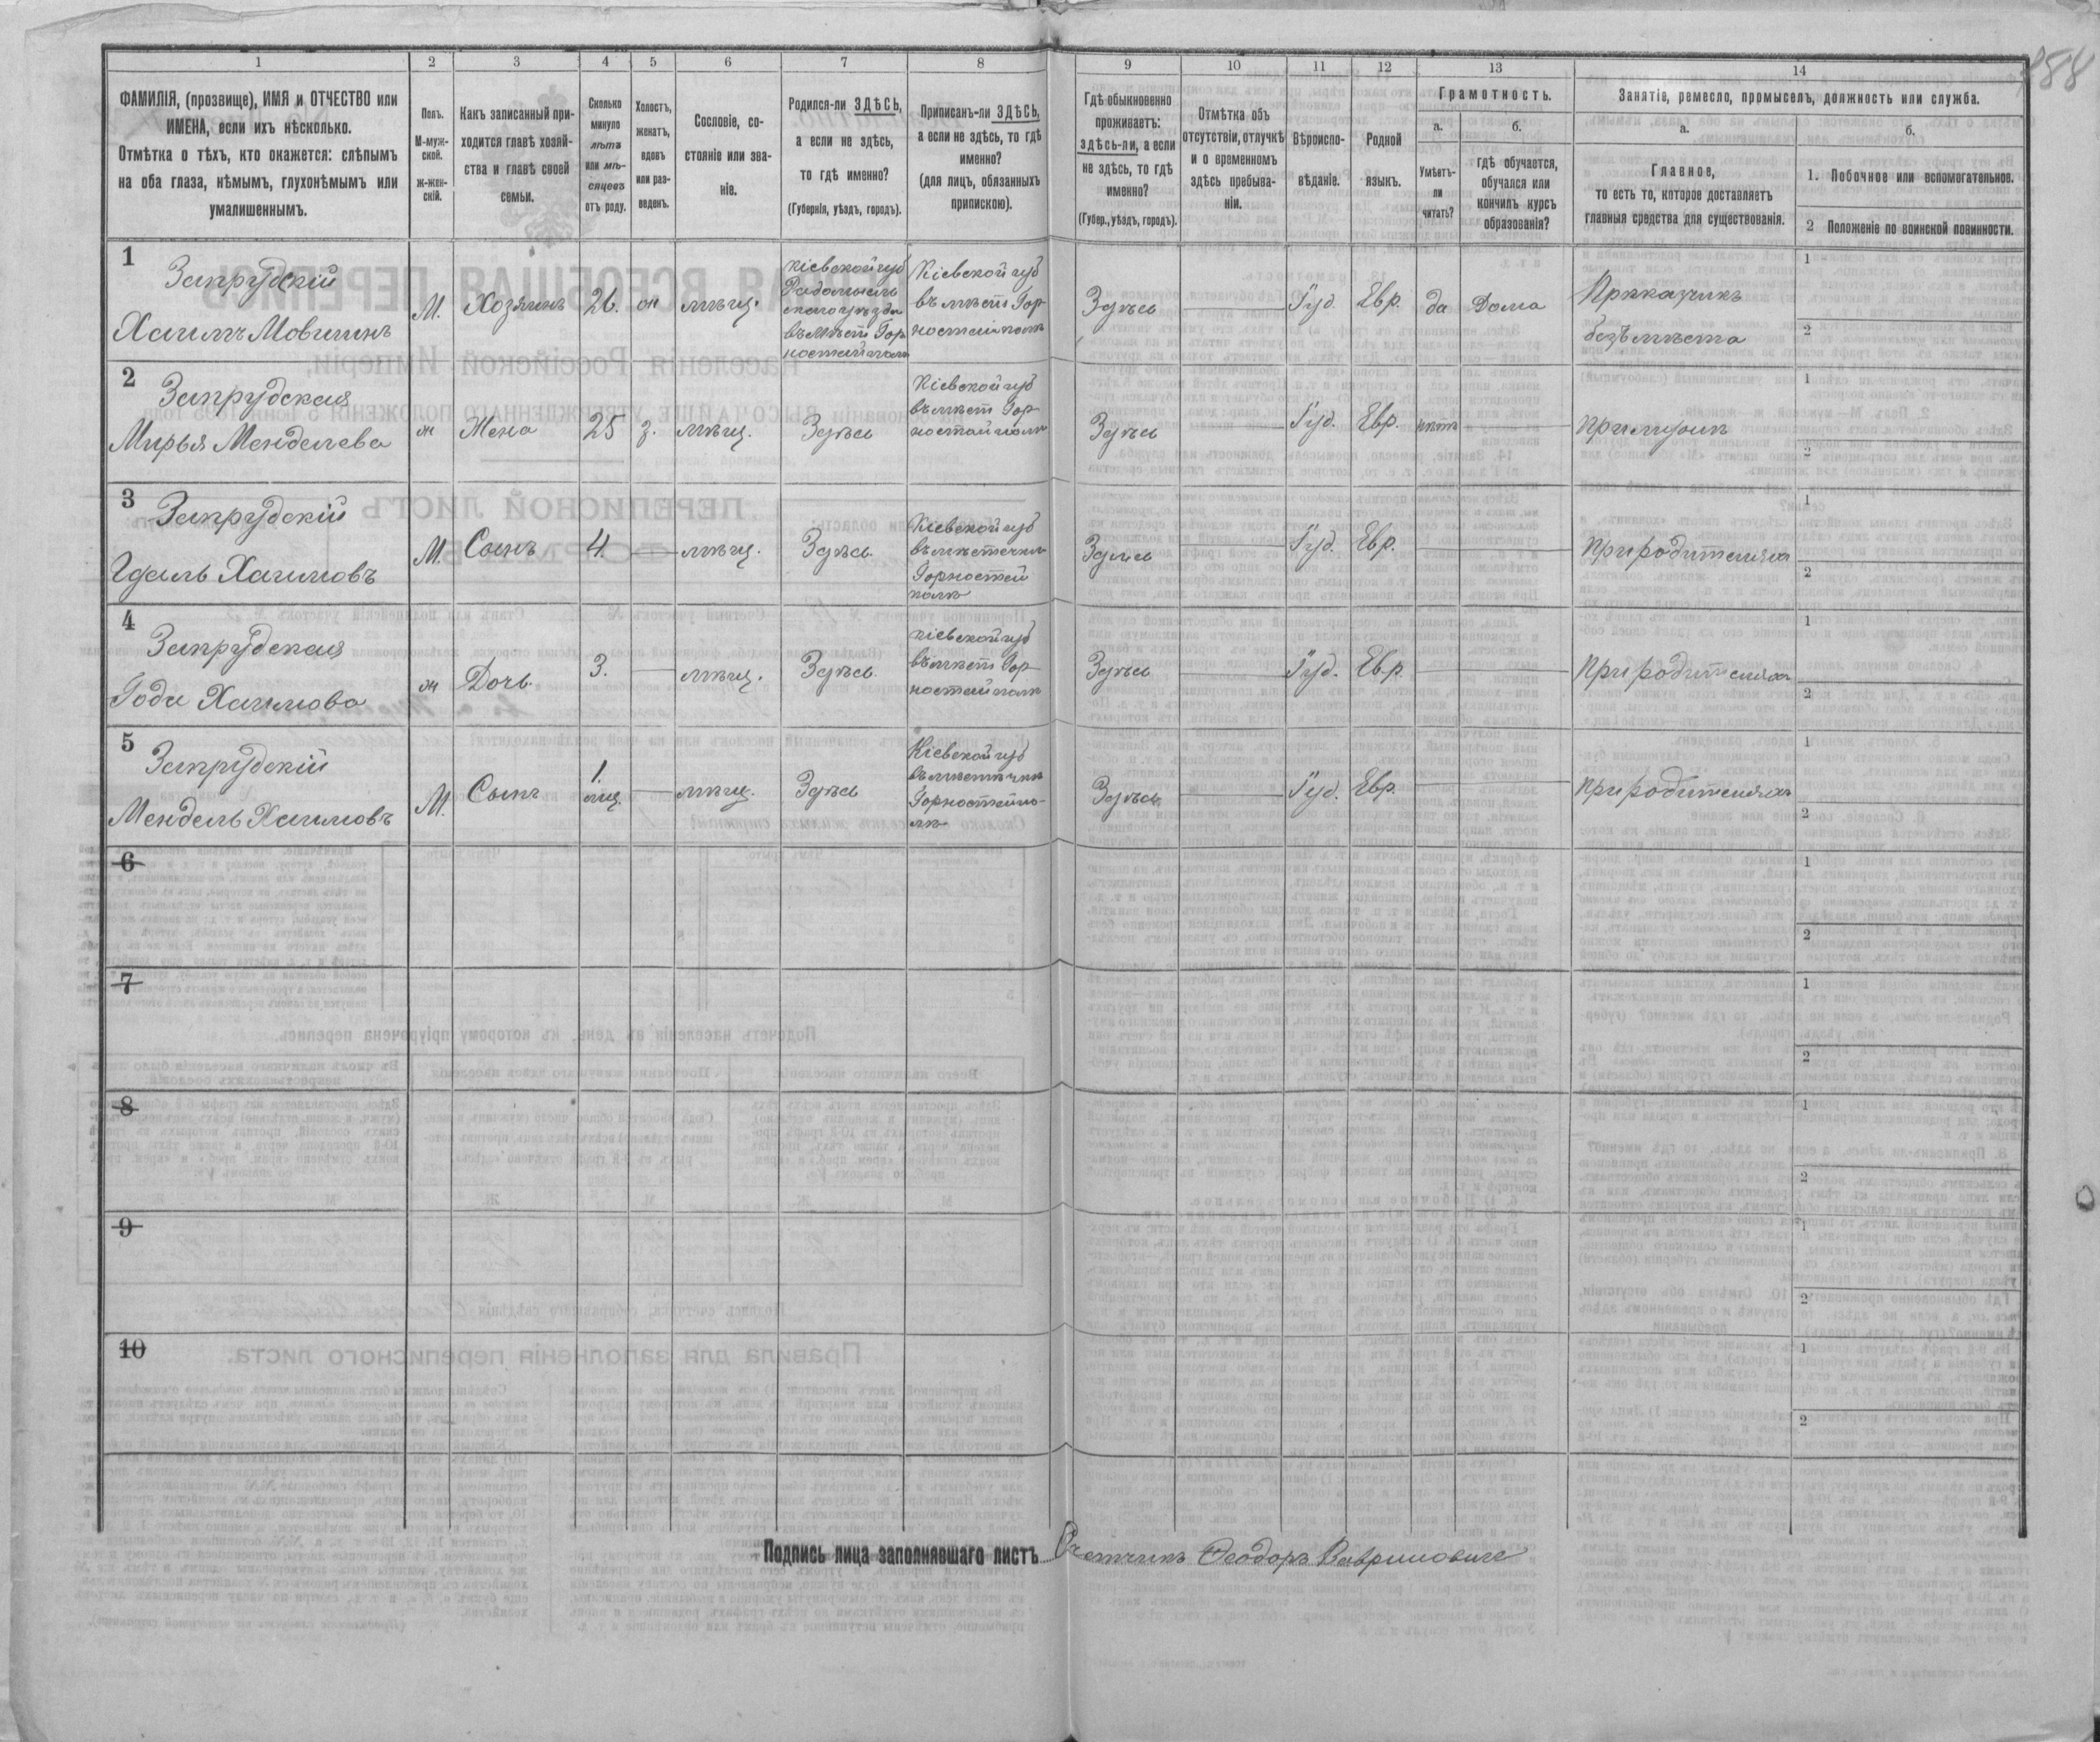 188
1 2 3 4 5 6 7 8 9 10 11 12 13 14
ФАМИЛІЯ, (прозвище), ИМЯ и ОТЧЕСТВО или
ИМЕНА, если ихъ нѣсколько.
Отмѣтка о тѣхъ, кто окажется: слѣпымъ
на оба глаза, нѣмымъ, глухонѣмымъ или
умалишеннымъ.
Полъ.
М-муж-
ской.
ж-жен-
скій.
Какъ записанный при-
ходится главѣ хозяй-
ства и главѣ своей
семьи.
Сколько
минуло
лѣтъ
или мѣ-
сяцевъ
отъ роду.
Холостъ,
женатъ,
вдовъ
или раз-
веденъ.
Сословіе, со-
стояніе или зва-
ніе.
Родился-ли ЗДѢСЬ,
а если не здѣсь,
то гдѣ именно?
(Губернія, уѣздъ, городъ).
Приписанъ-ли ЗДѢСЬ,
а если не здѣсь, то гдѣ
именно?
(для лицъ, обязанныхъ
припискою).
Гдѣ обыкновенно
проживаетъ:
здѣсь-ли, а если
не здѣсь, то гдѣ
именно?
(Губер., уѣздъ, городъ).
Отмѣтка объ
отсутствіи, отлучкѣ
и о временномъ
здѣсь пребыва-
ніи.
Вѣроиспо-
вѣданіе.
Родной
языкъ.
Грамотность.
а.
Умѣетъ-
ли
читать?
б.
гдѣ обучается,
обучался или
кончилъ курсъ
образованія?
Занятіе, ремесло, промыселъ, должность или служба.
а.
Главное,
то есть то, которое доставляетъ
главныя средства для существованія.
б.
1. Побочное или вспомогательное.
2 Положеніе по воинской повинности.
1
Запрудскій
Хаимъ Мовшинъ
М.
Хозяинъ
26.
ж
мѣщ.
Кіевской губ
Радомысль
скаго уѣзда
въ мѣст Гор
ностайполи
Кіевской губ
въ мѣст Гор
ностайполи
Здѣсь
Іуд.
Евр.
да
Дома
Прикащикъ
безъ мѣста
1
2
2
Запрудская
Мирья Менделева
ж
Жена
25
з.
мѣщ.
Здѣсь
Кіевской губ
въ мѣст Гор
ностайполи
Здѣсь
Іуд.
Евр.
нѣтъ
При мужѣ
1
2
3
Запрудскій
Гдаль Хаимовъ
М.
Сынъ
4.
мѣщ.
Здѣсь.
Кіевской губ
въ мѣстечки
Горностай
поли
Здѣсь
Іуд.
Евр.
При родителяхъ
1
2
4
Запрудская
Года Хаимова
ж
Дочь.
3.
мѣщ.
Здѣсь.
Кіевской губ
въ мѣст Гор
ностайполи
Здѣсь
Іуд.
Евр.
При родителяхъ
1
2
5
Запрудскій
Мендель Хаимовъ
М.
Сынъ
1.
мц.
мѣщ.
Здѣсь
Кіевской губ
въ мѣстечки
Горностайпо-
ли
Здѣсь
Іуд.
Евр.
При родителяхъ
1
2
6
1
2
7
1
2
8
1
2
9
1
2
10
1
2
Подпись лица заполнявшаго листъ Счетчикъ Ѳеодоръ Вавриновичъ